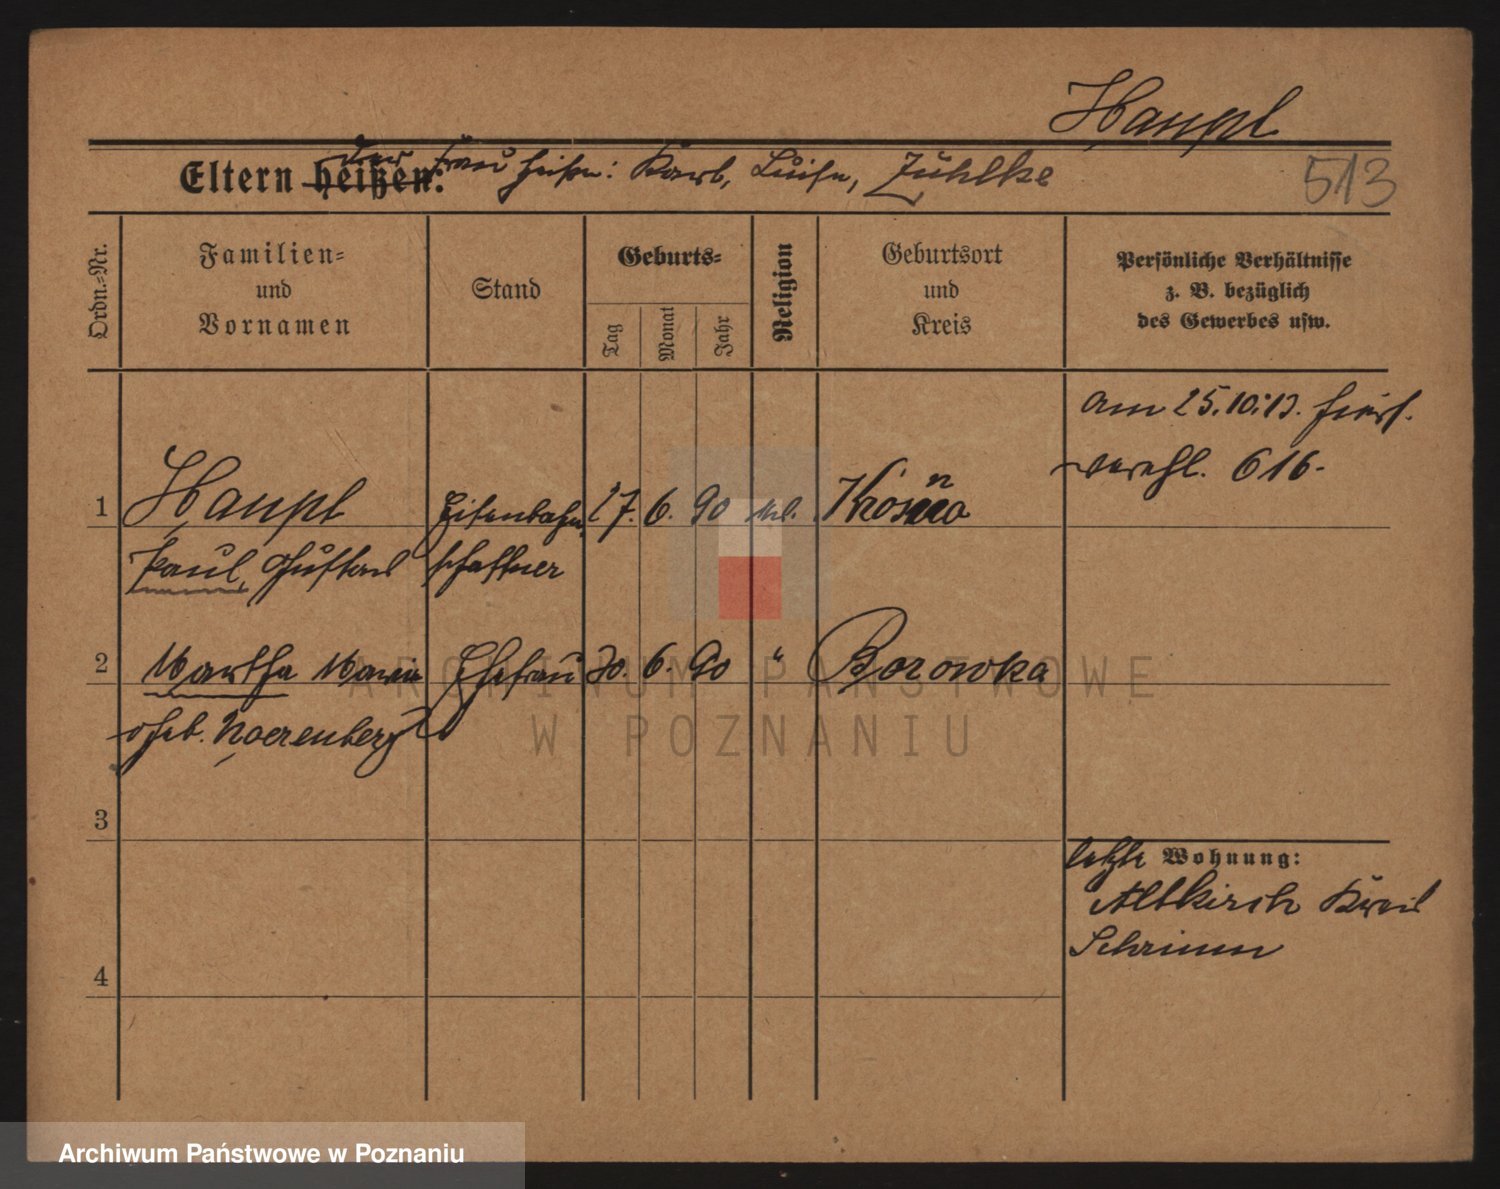 Haupt
Eltern heißen: der Frau heißen: Karl, Luise, Zühlke
513
Ordn.-Nr.
Familien-
und
Vornamen
Stand
Geburts-
Tag
Monat
Jahr
Religion
Geburtsort
und
Kreis
Persönliche Verhältnisse
z. B. bezüglich
des Gewerbes usw.
am 25.10.13. hierf.
verehl. 616.
1 Haupt Eisenbahn 27. 6. 90 Krosno
Paul, Gustav schaffner
2 Martha Marie Ehefrau 30. 6. 90 " Borowka
geb. Noerenberg
3
letzte Wohnung:
Altkirch Kreis
Schrimm
4
ARCHIWUM PAŃSTWOWE
W POZNANIU
Archiwum Państwowe w Poznaniu